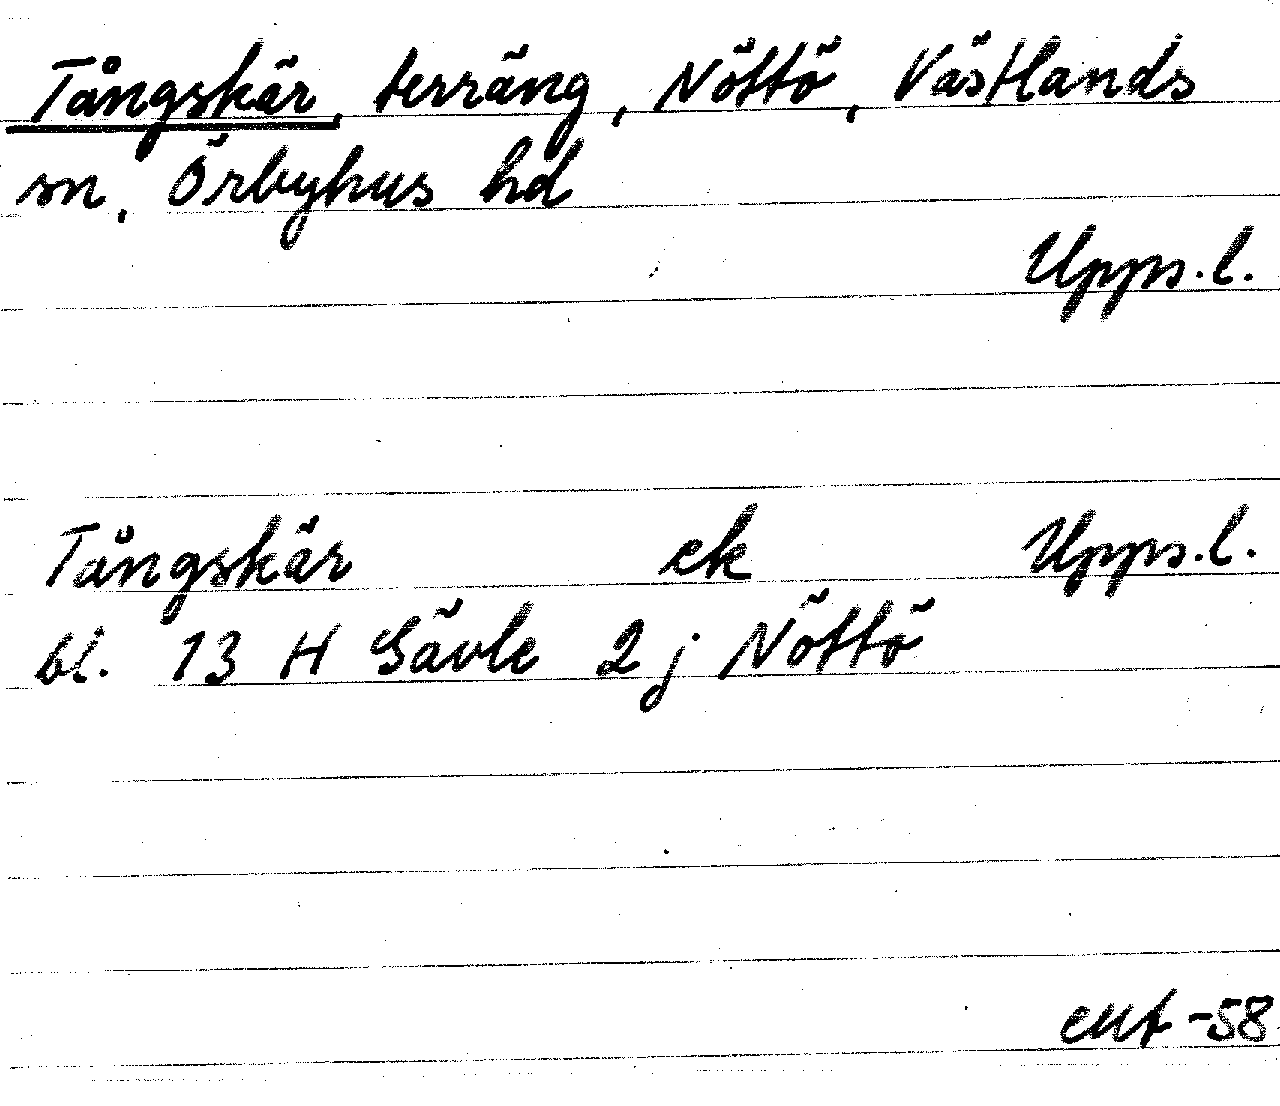 Tångskär, terräng, Nöttö, Västlands
sn, Örbyhus hd
Upps.l.
Tångskär ek Upps.l.
bl. 13 H Gävle 2 j Nöttö
-58